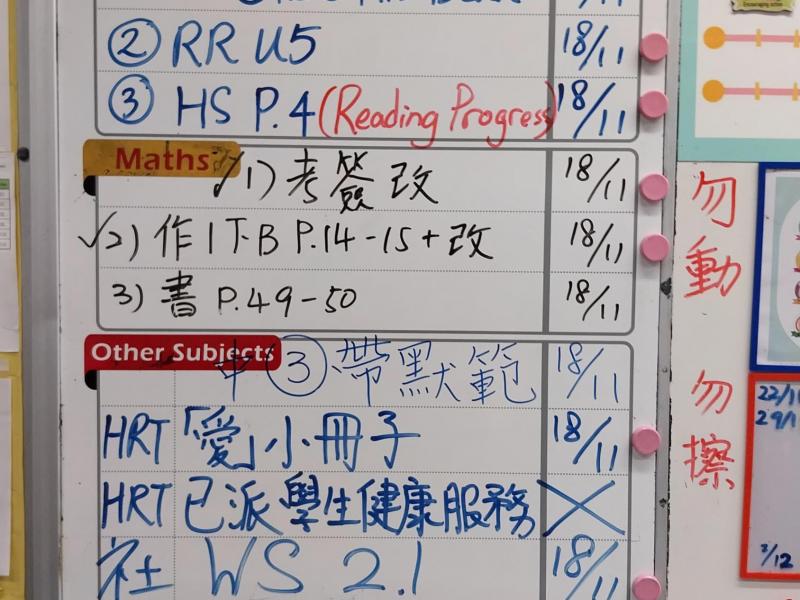 18/11
② RR U5 18/11
③ HS P.4 (Reading Progress) 18/11
Maths
✓1) 考簽改 18/11
✓2) 作1T.B P.14-15+改 18/11
3) 書 P.49-50 18/11
Other Subjects
中③帶默範 18/11
HRT「愛」小冊子 18/11
HRT 已派學生健康服務 ✕
社 WS 2.1 18/11
勿動
勿擦
22/11
2/12
Encouraging